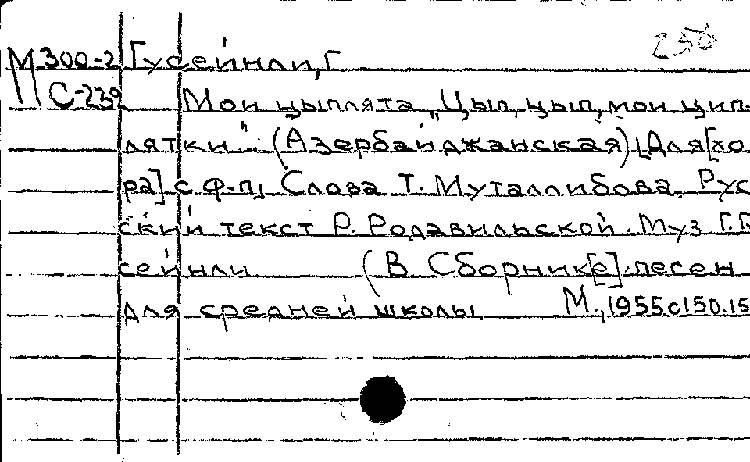 250
М 300-2 Гусейнли, Г
С-239 Мои цыплята „Цып, цып, мои цип
лятки" (Азербайджанская) [Для [хо
ра] с ф-п, Слова Т. Муталлибова. Рус
ский текст Р. Родавильской. Муз Г. Г
сейнли (В Сборник[е] песен
для средней школы М., 1955 с 150.15